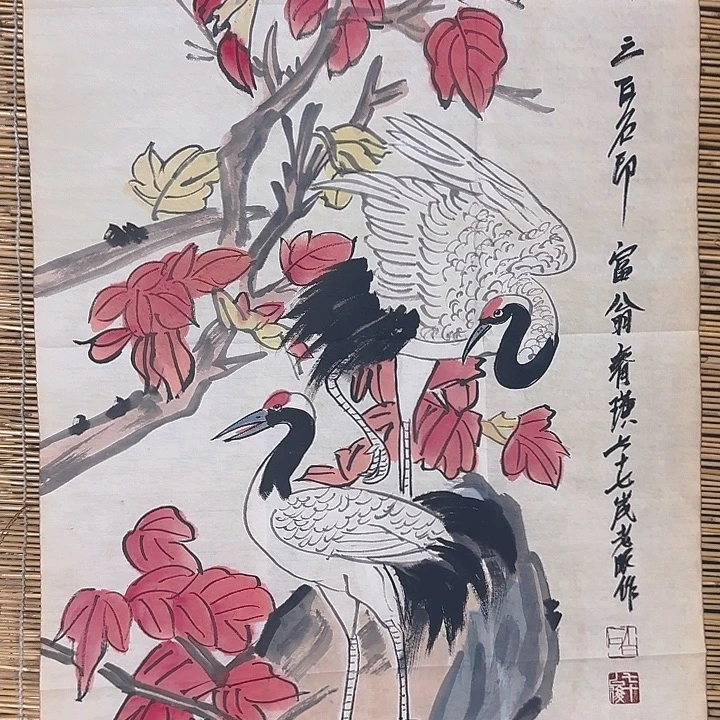 三百石印富翁齊璜七十七歲老眼作